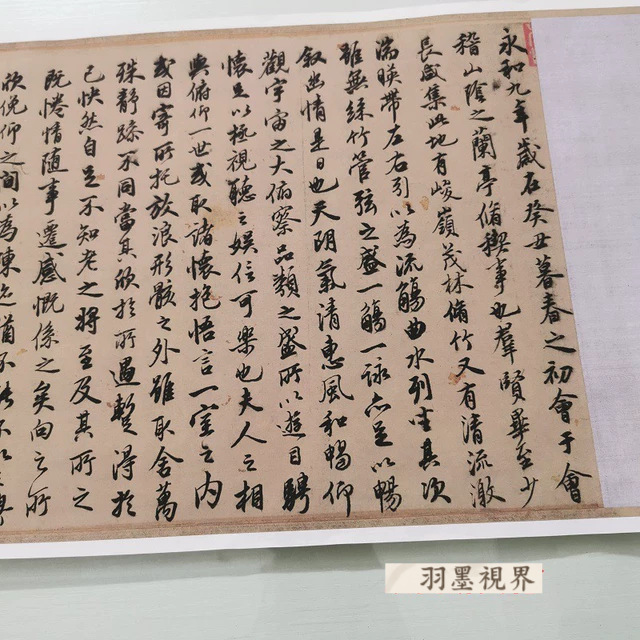 永和九年歲在癸丑暮春之初會于會
稽山陰之蘭亭脩稧事也羣賢畢至少
長咸集此地有峻嶺茂林脩竹又有清流激
湍暎帶左右引以為流觴曲水列坐其次
雖無絲竹管弦之盛一觴一詠亦足以暢
敘幽情是日也天朗氣清惠風和暢仰
觀宇宙之大俯察品類之盛所以遊目騁
懷足以極視聽之娛信可樂也夫人之相
與俯仰一世或取諸懷抱悟言一室之内
或因寄所託放浪形骸之外雖取舍萬
殊靜躁不同當其欣於所遇暫得於
己快然自足不知老之將至及其所之
既惓情隨事遷感慨係之矣向之所
欣俛仰之間以為陳迹猶不能不以
羽墨視界